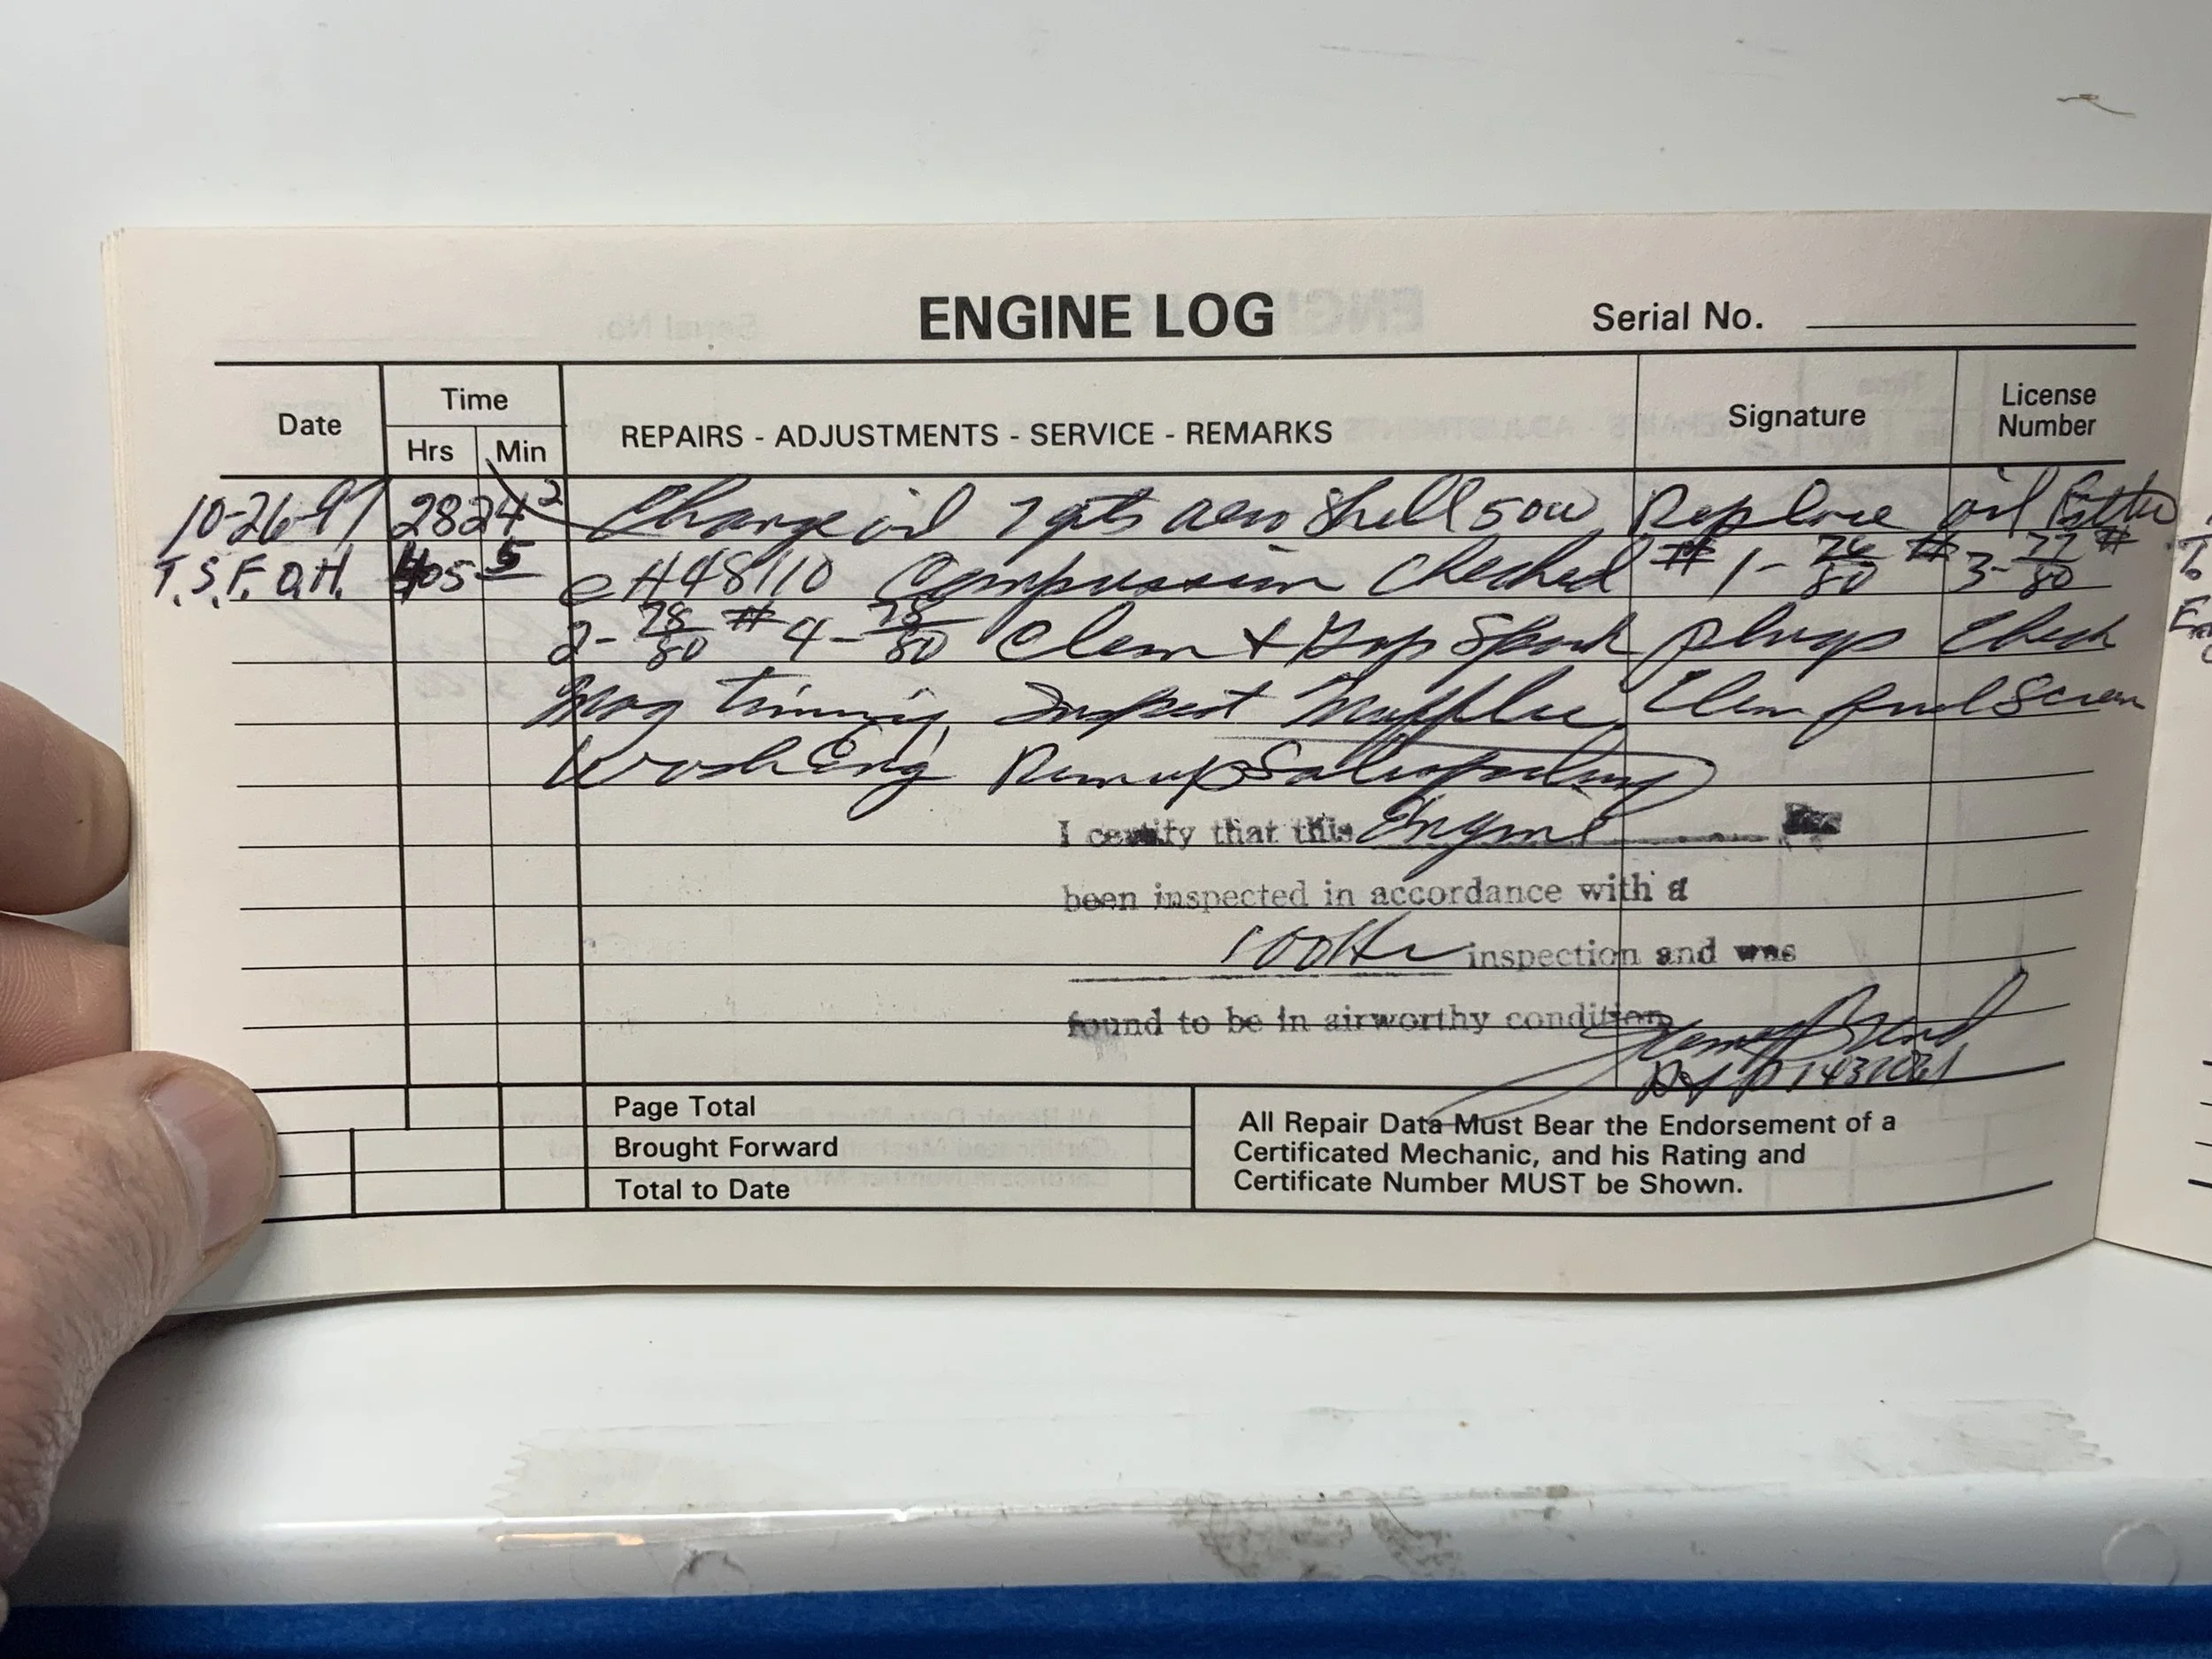 ENGINE LOG
Serial No.
Date
Time
Hrs Min
REPAIRS - ADJUSTMENTS - SERVICE - REMARKS
Signature
License Number
10-26-97 2824 2 Change oil 7 qts aero Shell 50W Replace oil Filter
T.S.F.O.H. 405 5 CH48110 Compression Checked #1-76/80 #3-77/80 #
2-78/80 #4-78/80 Clean + Gap Spark plugs Check
Mag timing, Inspect Muffler, Clean fuel Screen
Wash Eng Runup Satisfactory
I certify that this Engine
been inspected in accordance with a
100Hr inspection and was
found to be in airworthy condition
Page Total
Brought Forward
Total to Date
All Repair Data Must Bear the Endorsement of a
Certificated Mechanic, and his Rating and
Certificate Number MUST be Shown.